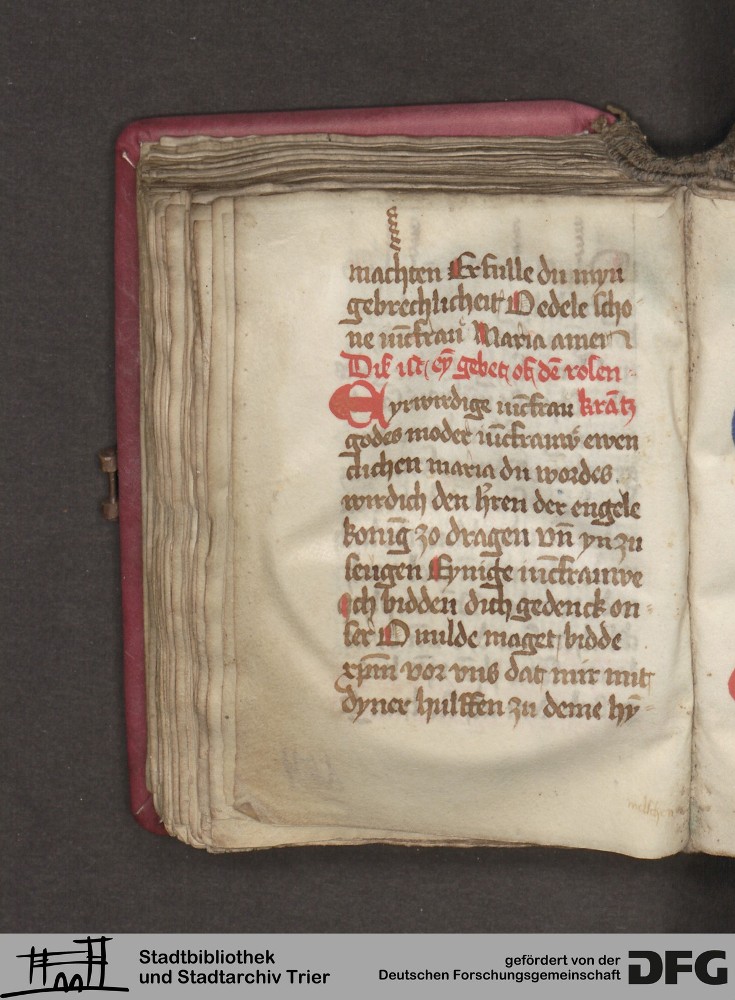 machten Erfulle du myn
gebrechlicheit O edele scho
ne iūcfrau Maria amen
Dis ist eȳ gebet ob dē rosen
Eyrwirdige iūcfrau krātz
godes moder iūcfrauwe ewen
clichen maria du wordes
wirdich den hʼren der engele
konīg zo dragen vn̄ yn zu
seugen Eynige iūcfrauwe
ich bidden dich gedenck on
ser O milde maget bidde
xpm̄ vor vns dat mir mit
dyner hulffen zu deme hȳ
Stadtbibliothek
und Stadtarchiv Trier
gefördert von der
Deutschen Forschungsgemeinschaft
DFG